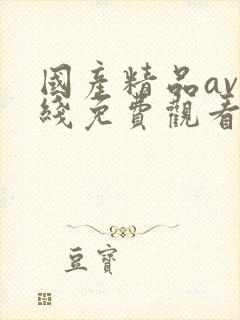 國產精品av
綫免費觀看
豆寶